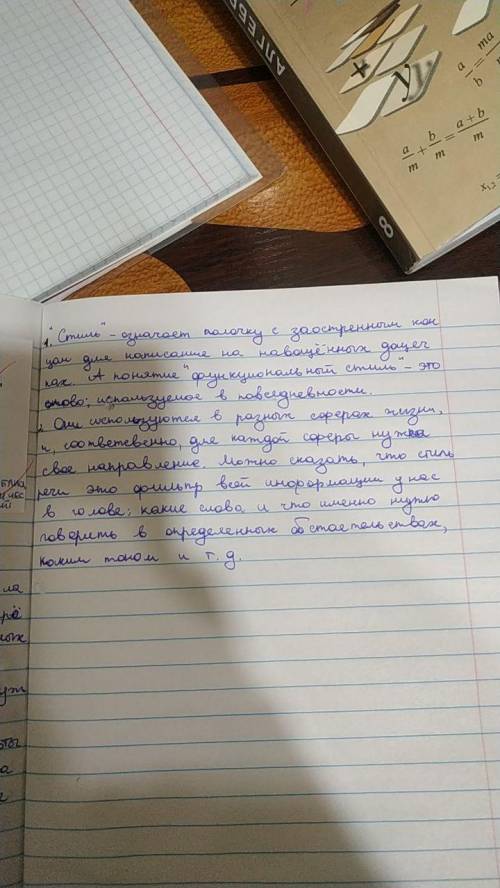 АЛГЕБР
8
a/m + b/m = a+b/m
a/b = ma
x₁,₂ =
+
y
1. "Стиль" - означает палочку с заостренным кон
цом для написание на навощённых дощеч
ках. А понятие "функциональный стиль" - это
слово; используемое в повседневности.
2. Они используются в разных сферах жизни,
и, соответсвенно, для каждой сферы нужна
свое направление. Можно сказать, что стиль
речи это фильтр всей информации у нас
в голове; какие слова и что именно нужно
говорить в определенных обстаетельствах,
каким тоном и т.д.
ла
ных
уж